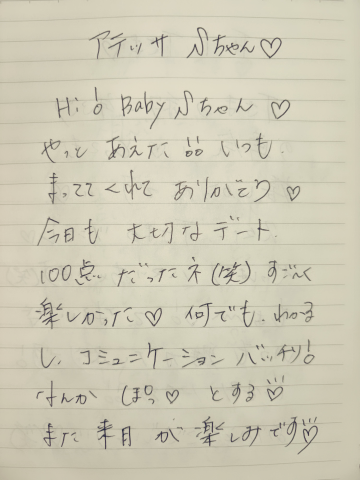 アテッサ Sちゃん♡
Hi! Baby Sちゃん ♡
やっと あえた いつも
まっててくれて ありがとう ♡
今日も 大切な デート
100点 だったネ(笑) すごく
楽しかった♡ 何でも、わかる
し、コミュニケーション バッチリ!
なんか ぽっ♡ とする♡
また 来月 が 楽しみです♡